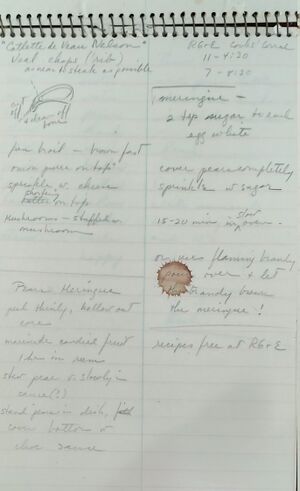 "Cotlette de Veau Nelson"
Veal chops (rib)
as near to steak as possible
cut off
clean off bone
pan broil - brown fast
onion puree on top
sprinkle w. cheese
on top
mushrooms - stuffed w.
mushroom
Pears Meringue
peel thinly, hollow out
core
marinate candied fruit
1 hr in rum
stew pear slowly in
sauce (?)
stand pears in dish,
cover bottom w
choc sauce
RG+E Cooks' Corner
11 - 4:20
7 - 8:20
meringue -
2 tsp sugar to each
egg white
cover pear completely
sprinkle w sugar
slow
15-20 min in oven
flaming brandy
pour over & let
the brandy brown
the meringue!
recipes free at RG+E